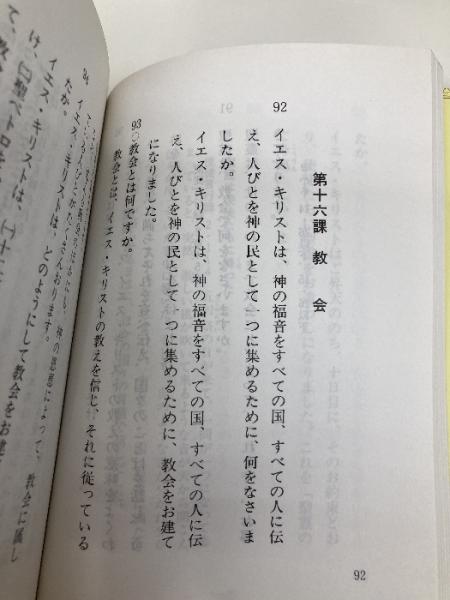 第十六課 教 会
92 イエス・キリストは、神の福音をすべての国、すべての人に伝
え、人びとを神の民として一つに集めるために、何をなさいま
したか。
イエス・キリストは、神の福音をすべての国、すべての人に伝
え、人びとを神の民として一つに集めるために、教会をお建て
になりました。
93○教会とは何ですか。
教会とは、イエス・キリストの教えを信じ、それに従っている
神の恩恵によって、教会に属し
ている人びとがたくさんおります。
94 イエス・キリストは、どのようにして教会をお建
たか。
イエス・キリストは、
92